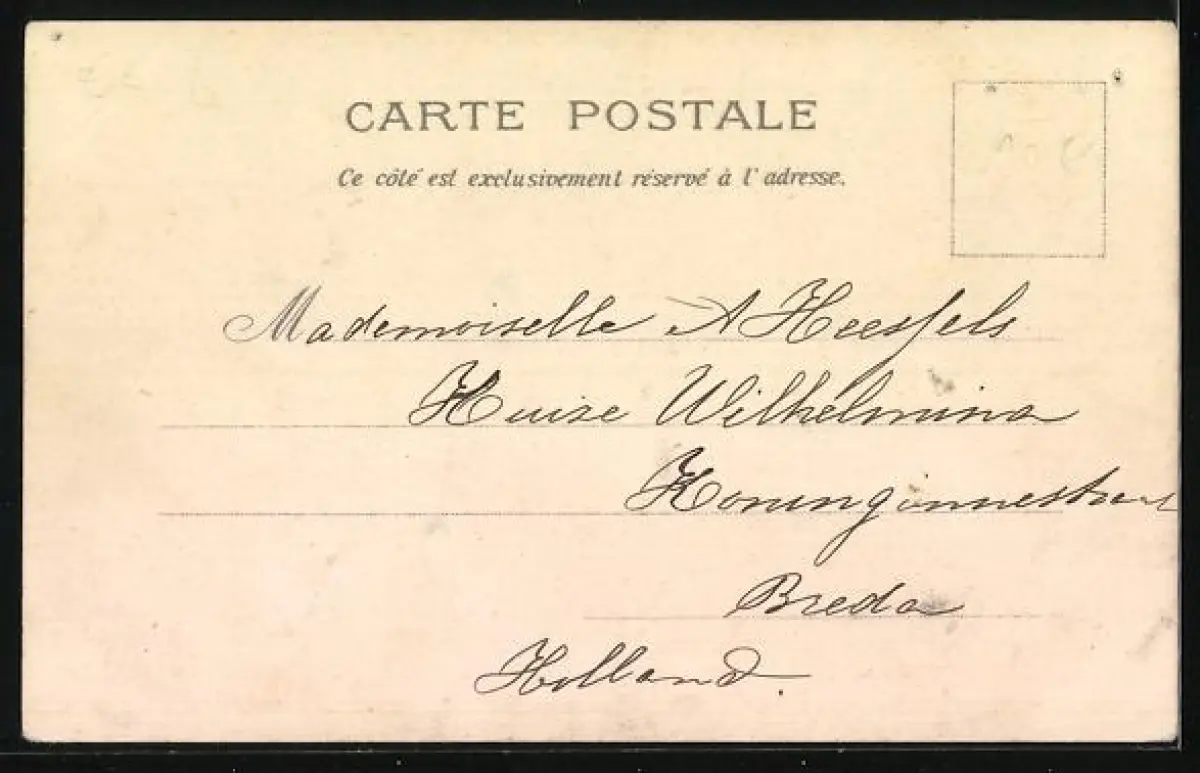 CARTE POSTALE
Ce côté est exclusivement réservé à l'adresse.
Mademoiselle A Heessels
Huize Wilhelmina
Koninginnestraat
Breda
Holland.